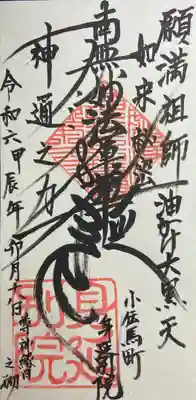 願満祖師 油かけ大黒天
如来秘密
南無妙法蓮華経
神通之力
令和六甲辰年卯月
之砌
小伝馬町
身延別院
身延別院